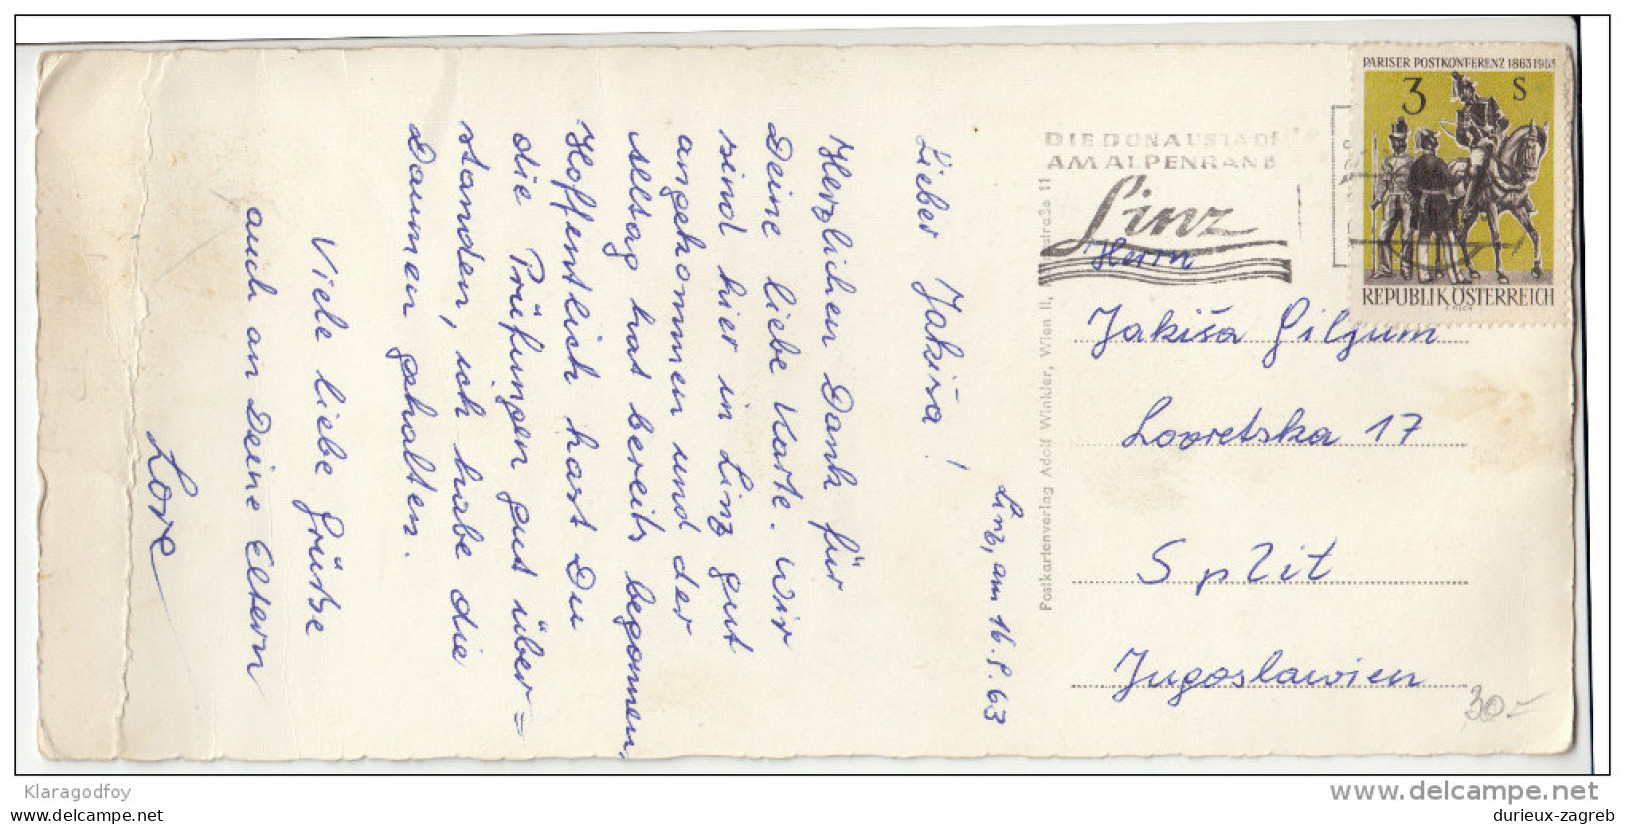 Linz, am 16.9.63
Lieber Jakiša!
Herzlichen Dank für
Deine liebe Karte. Wir
sind hier in Linz gut
angekommen und der
Alltag hat bereits begonnen.
Hoffentlich hast Du
die Prüfungen gut über=
standen, ich habe die
Daumen gehalten.
Viele liebe Grüße
auch an Deine Eltern
Lore
Postkartenverlag Adolf Winkler, Wien II, 11
DIE DONAUSTADT
AM ALPENRAND
Linz
PARISER POSTKONFERENZ 1863 1963
3 S
REPUBLIK ÖSTERREICH
Herrn
Jakiša Giljum
Lovretska 17
Split
Jugoslawien
30.-
Klaragodfoy
www.delcampe.net
durieux-zagreb